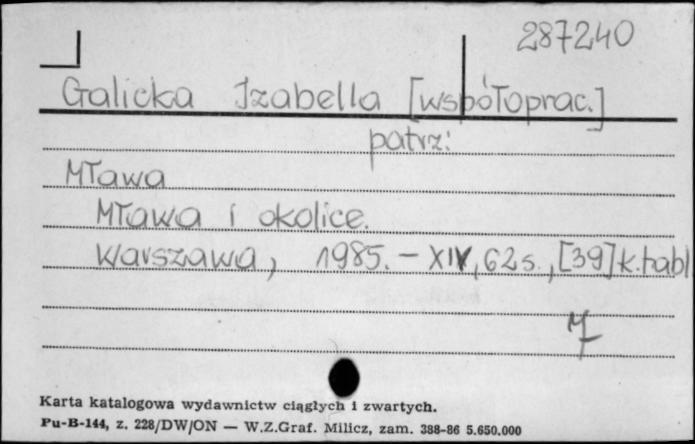 287240
Galicka Izabella [współoprac.]
patrz:
Mława
Mława i okolice.
Warszawa, 1985. - XIV, 62 s., [39] k. tabl
Karta katalogowa wydawnictw ciągłych i zwartych.
Pu-B-144, z. 228/DW/ON — W.Z.Graf. Milicz, zam. 388-86 5.650.000